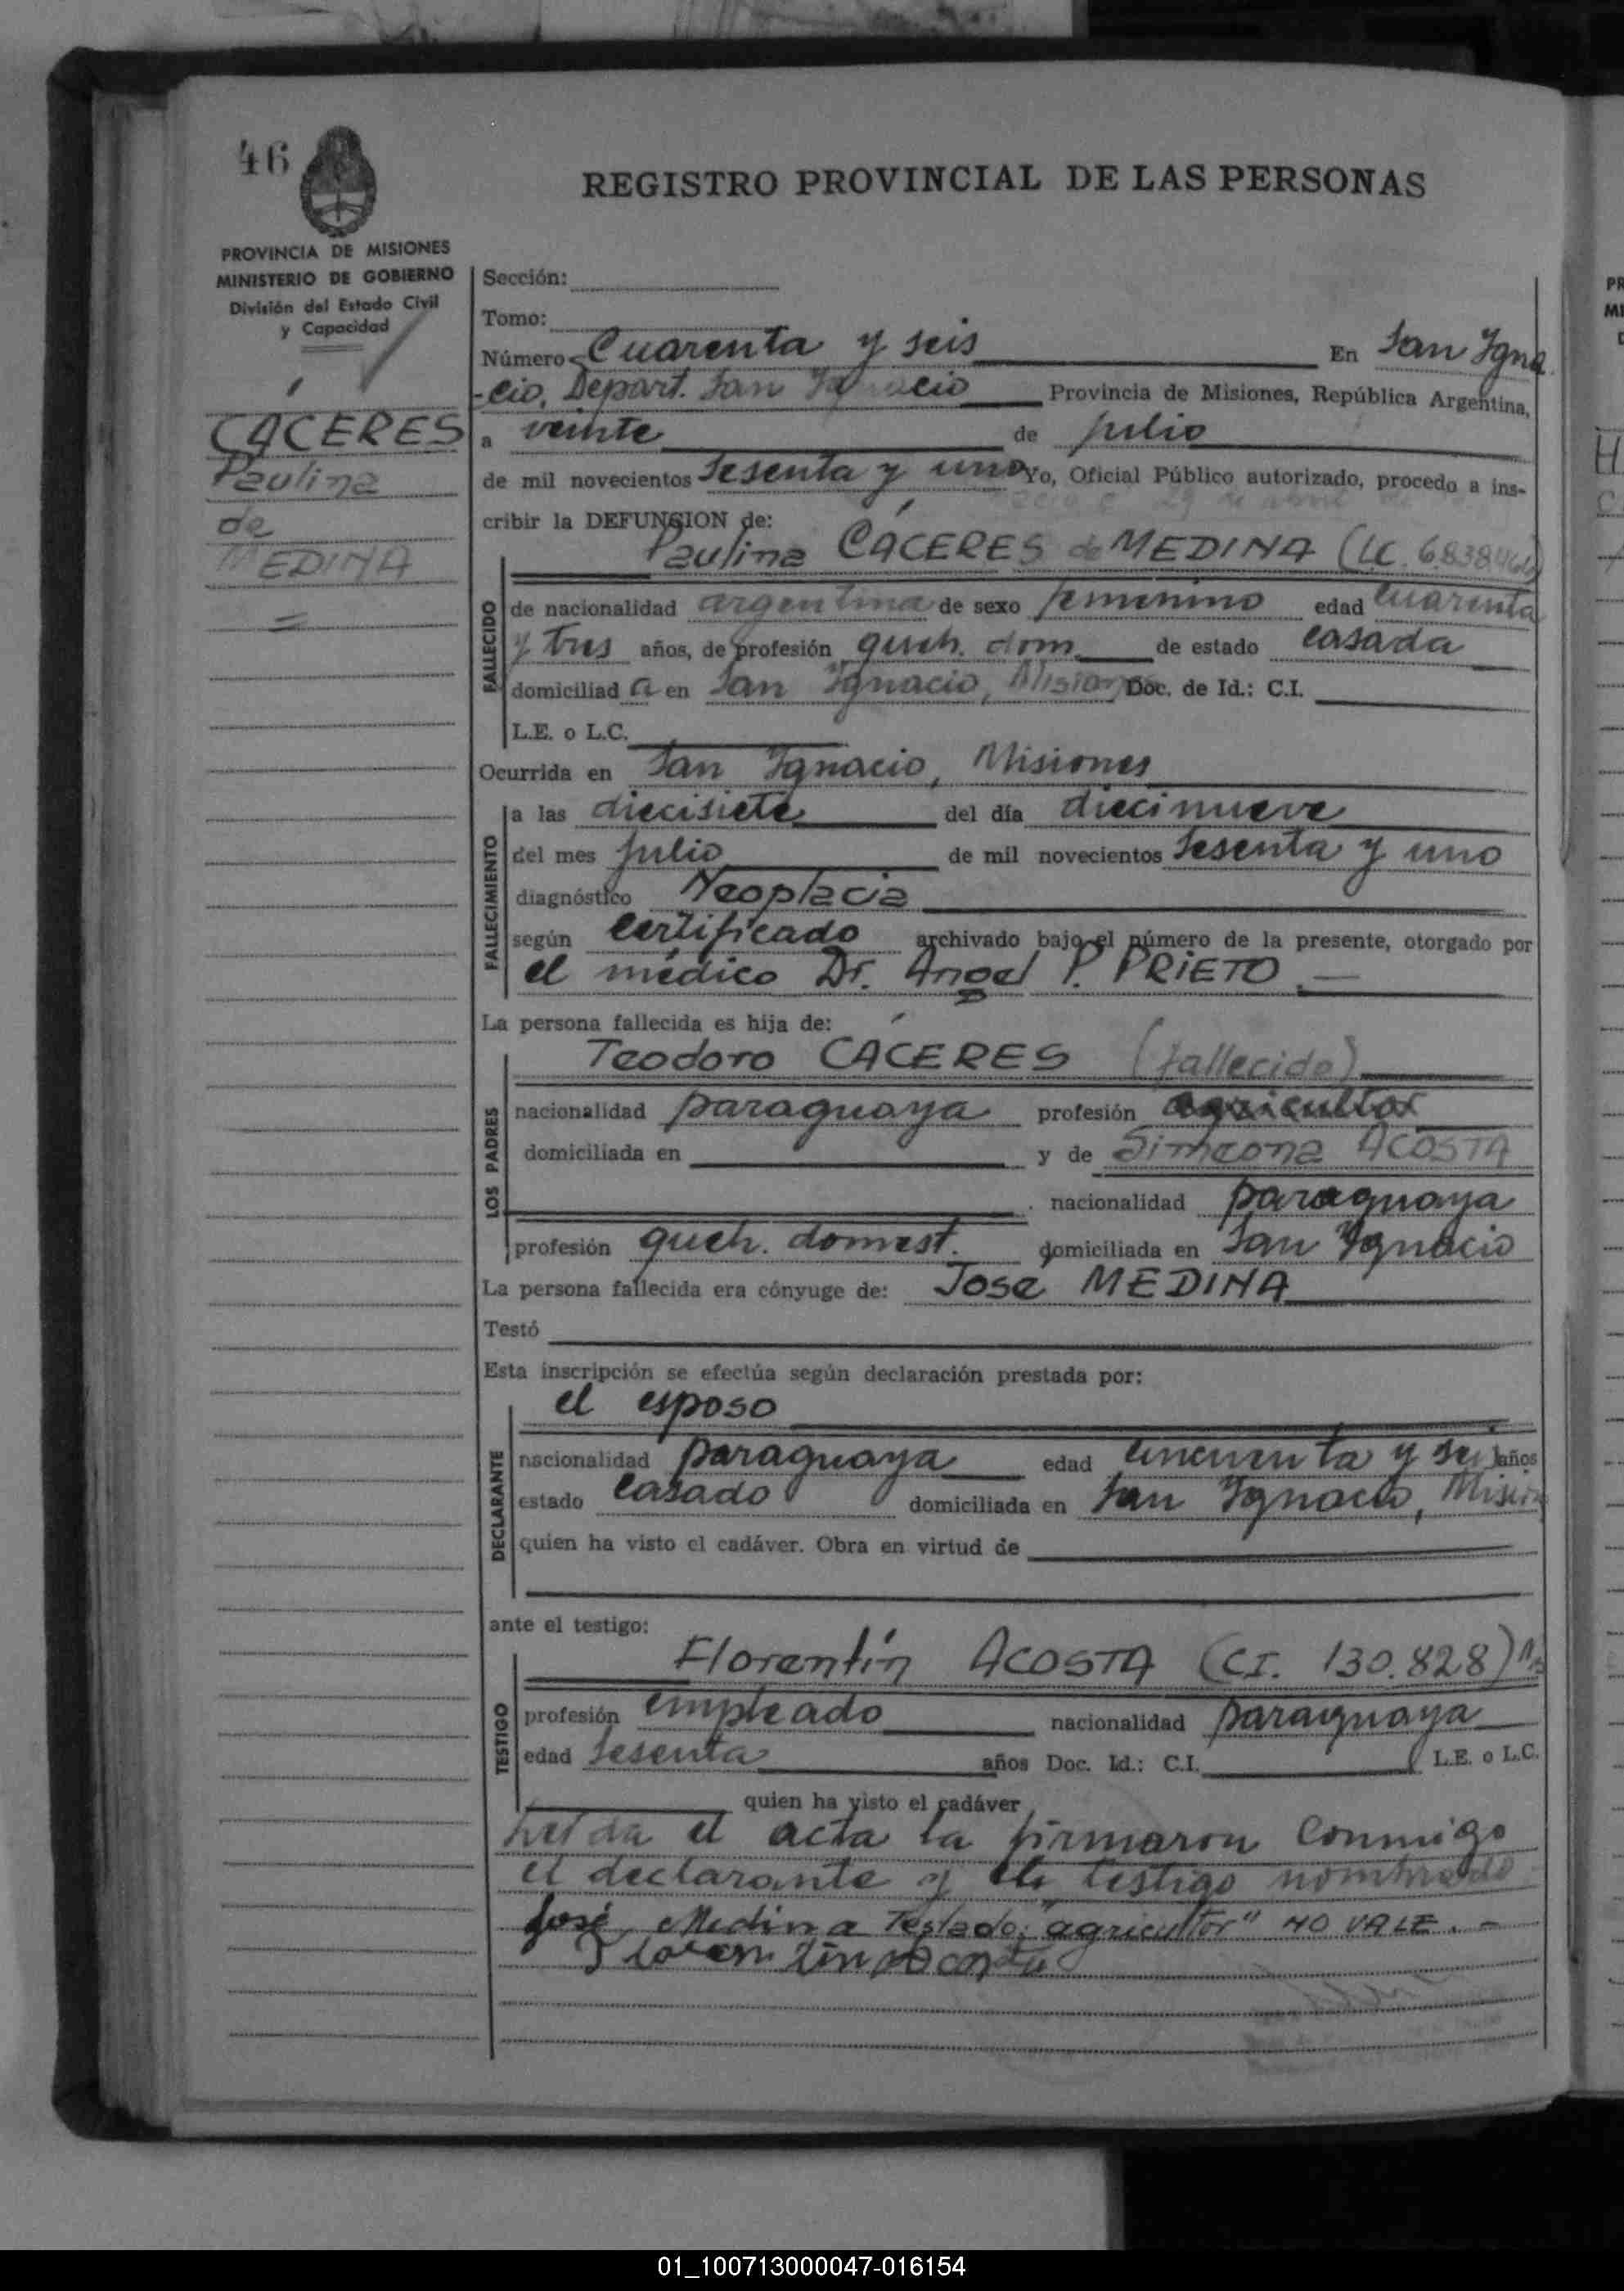 46
REGISTRO PROVINCIAL DE LAS PERSONAS
PROVINCIA DE MISIONES
MINISTERIO DE GOBIERNO
División del Estado Civil
y Capacidad
CÁCERES
Paulina
de
MEDINA
Sección:
Tomo:
Número Cuarenta y seis En San Igna
-cio, Depart. San Ignacio Provincia de Misiones, República Argentina,
a veinte de julio
de mil novecientos sesenta y uno Yo, Oficial Público autorizado, procedo a ins-
cribir la DEFUNSION de:
Paulina CÁCERES de MEDINA (LC.
FALLECIDO
de nacionalidad argentina de sexo femenino edad cuarenta
y tres años, de profesión queh. dom. de estado casada
domiciliad a en San Ignacio, Misiones Doc. de Id.: C.I.
L.E. o L.C.
Ocurrida en San Ignacio, Misiones
FALLECIMIENTO
a las diecisiete del día diecinueve
del mes julio de mil novecientos sesenta y uno
diagnóstico Neoplacia
según certificado archivado bajo el número de la presente, otorgado por
el médico Dr. Angel P. PRIETO.—
La persona fallecida es hija de:
LOS PADRES
Teodoro CÁCERES (fallecido)
nacionalidad paraguaya profesión agricultor
domiciliada en y de Simeona ACOSTA
nacionalidad paraguaya
profesión queh. domest. domiciliada en San Ignacio
La persona fallecida era cónyuge de: Jose MEDINA
Testó
Esta inscripción se efectúa según declaración prestada por:
DECLARANTE
el esposo
nacionalidad paraguaya edad cincuenta y seis años
estado casado domiciliada en San Ignacio, Mision
quien ha visto el cadáver. Obra en virtud de
ante el testigo:
TESTIGO
Florentín ACOSTA (CI. 130.828)
profesión empleado nacionalidad paraguaya
edad sesenta años Doc. Id.: C.I. L.E. o L.C.
quien ha visto el cadáver
Leída el acta la firmaron conmigo
el declarante y el testigo nombrado
José Medina Testado: "agricultor" NO VALE.-
Florentin Acosta
01_100713000047-016154